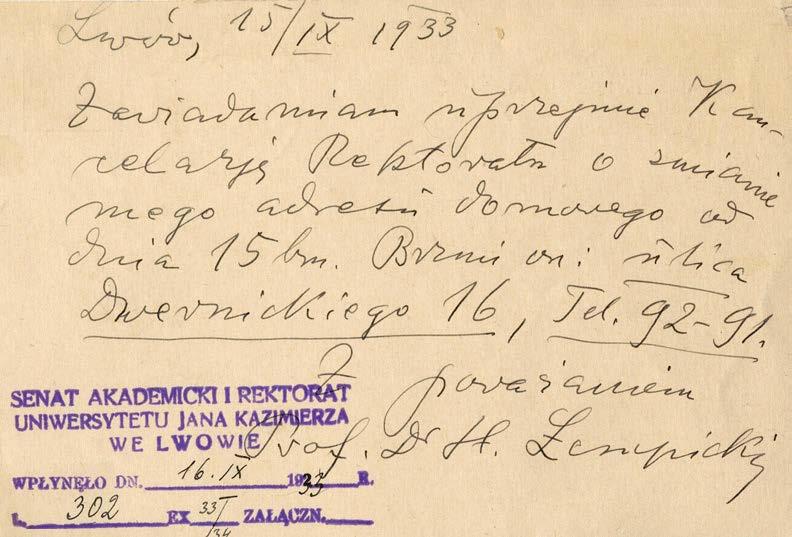 Lwów, 15/IX 1933
Zawiadamiam uprzejmie Kan-
celarję Rektoratu o zmianie
mego adresu domowego od
dnia 15 bm. Brzmi on: ulica
Dwernickiego 16, Tel. 92-91.
Z poważaniem
Prof. Dr. St. Łempicki
SENAT AKADEMICKI I REKTORAT
UNIWERSYTETU JANA KAZIMIERZA
WE LWOWIE
WPŁYNĘŁO DN. 16.IX 1933 R.
L. 302 EX 33/34 ZAŁĄCZN.